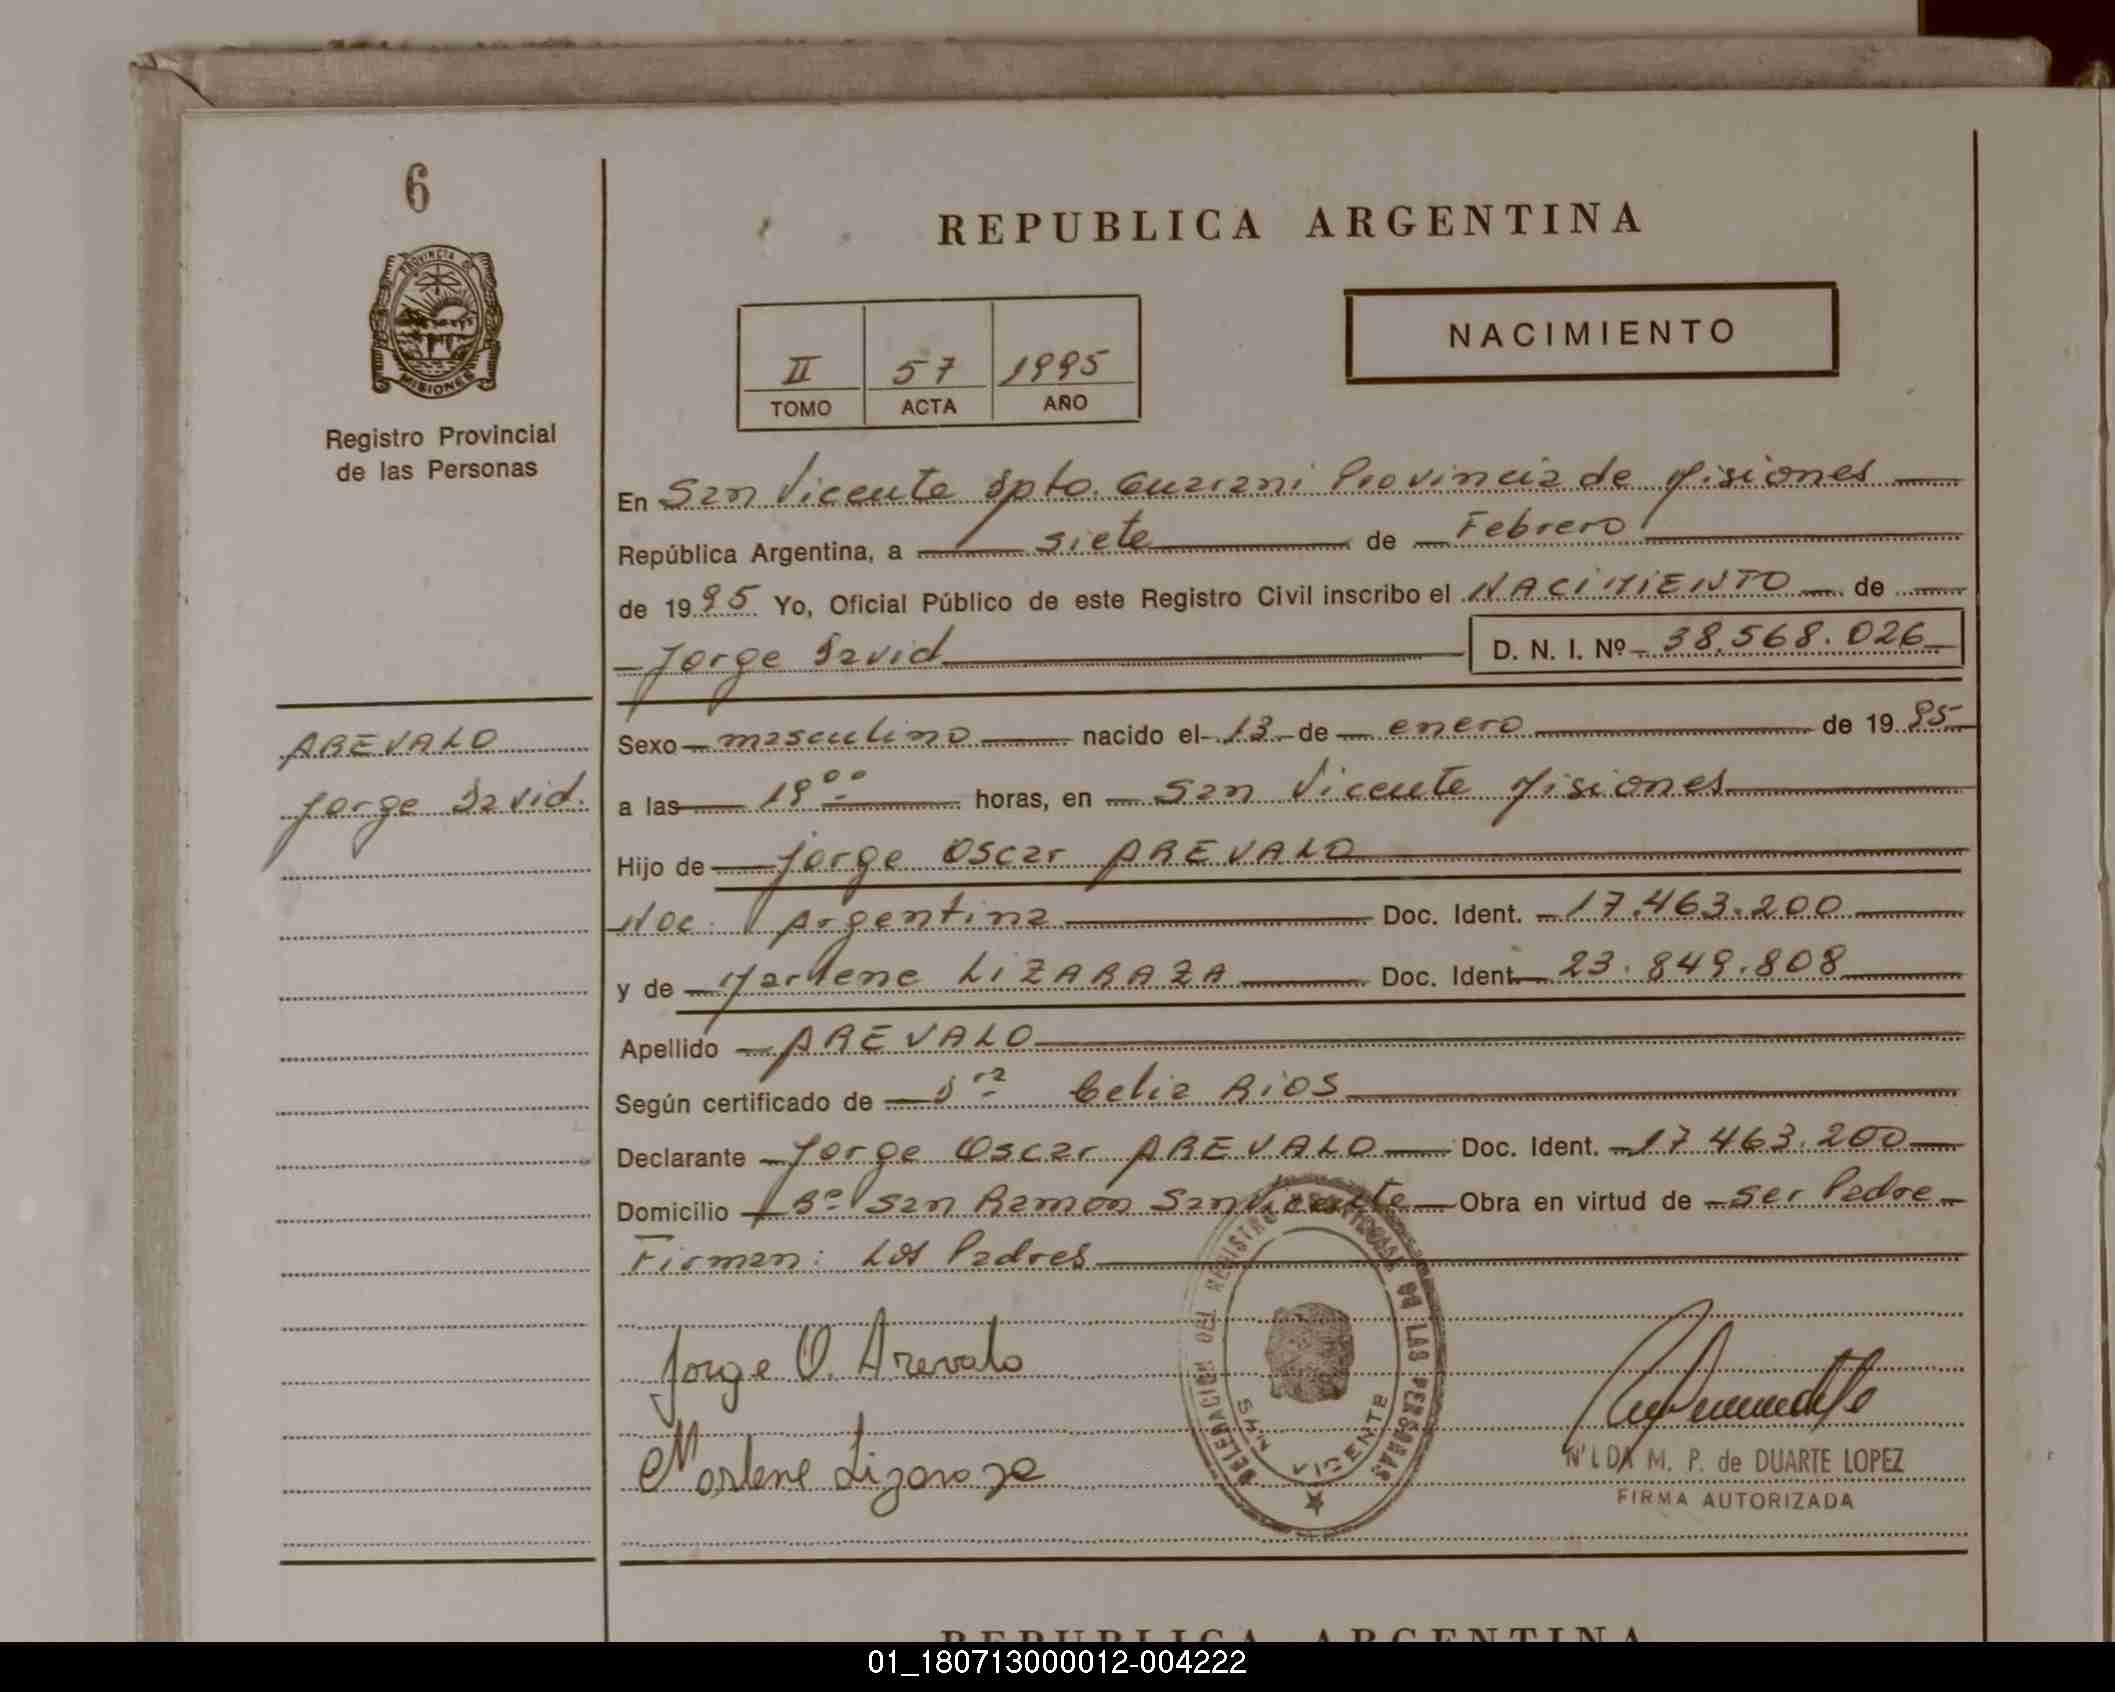 6
PROVINCIA DE
MISIONES
Registro Provincial
de las Personas
AREVALO
Jorge David.
REPUBLICA ARGENTINA
NACIMIENTO
II 57 1995
TOMO ACTA AÑO
En San Vicente Dpto. Guarani Provincia de Misiones
República Argentina, a siete de Febrero
de 1995 Yo, Oficial Público de este Registro Civil inscribo el NACIMIENTO de
Jorge David D. N. I. Nº 38.568.026
Sexo masculino nacido el 13 de enero de 1995
a las 19⁰⁰ horas, en San Vicente Misiones
Hijo de Jorge Oscar AREVALO
Nac. Argentina Doc. Ident. 17.463.200
y de Marlene LIZARAZA Doc. Ident. 23.849.808
Apellido AREVALO
Según certificado de Dra Celia RIOS
Declarante Jorge Oscar AREVALO Doc. Ident. 17.463.200
Domicilio Bº San Ramon San Vicente Obra en virtud de ser Padre
Firman: Los Padres
Jorge O. Arevalo
Marlene Lizaraza
DELEGACION DEL REGISTRO DE LAS PERSONAS
SAN VICENTE
NILDA M. P. de DUARTE LOPEZ
FIRMA AUTORIZADA
REPUBLICA ARGENTINA
01_180713000012-004222